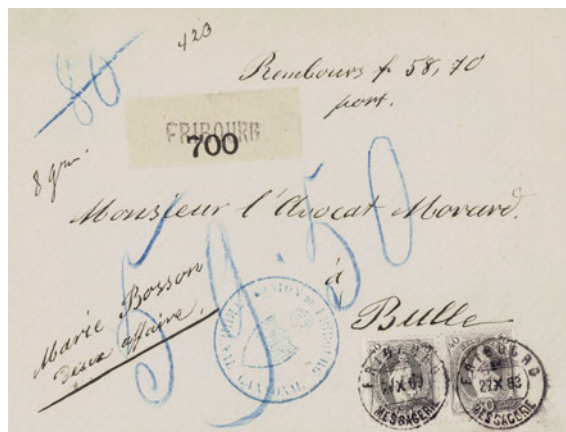 80
420
Rembours fr 58,70
port.
FRIBOURG
700
8 grm.
Monsieur l'Avocat Morard.
59.50
à
Bulle
Marie Bosson
Deux affaire.
CANTON DE FRIBOURG
CANTONAL
40
40
FRIBOURG
MESSAGERIE
FRIBOURG
27 X 83
MESSAGERIE